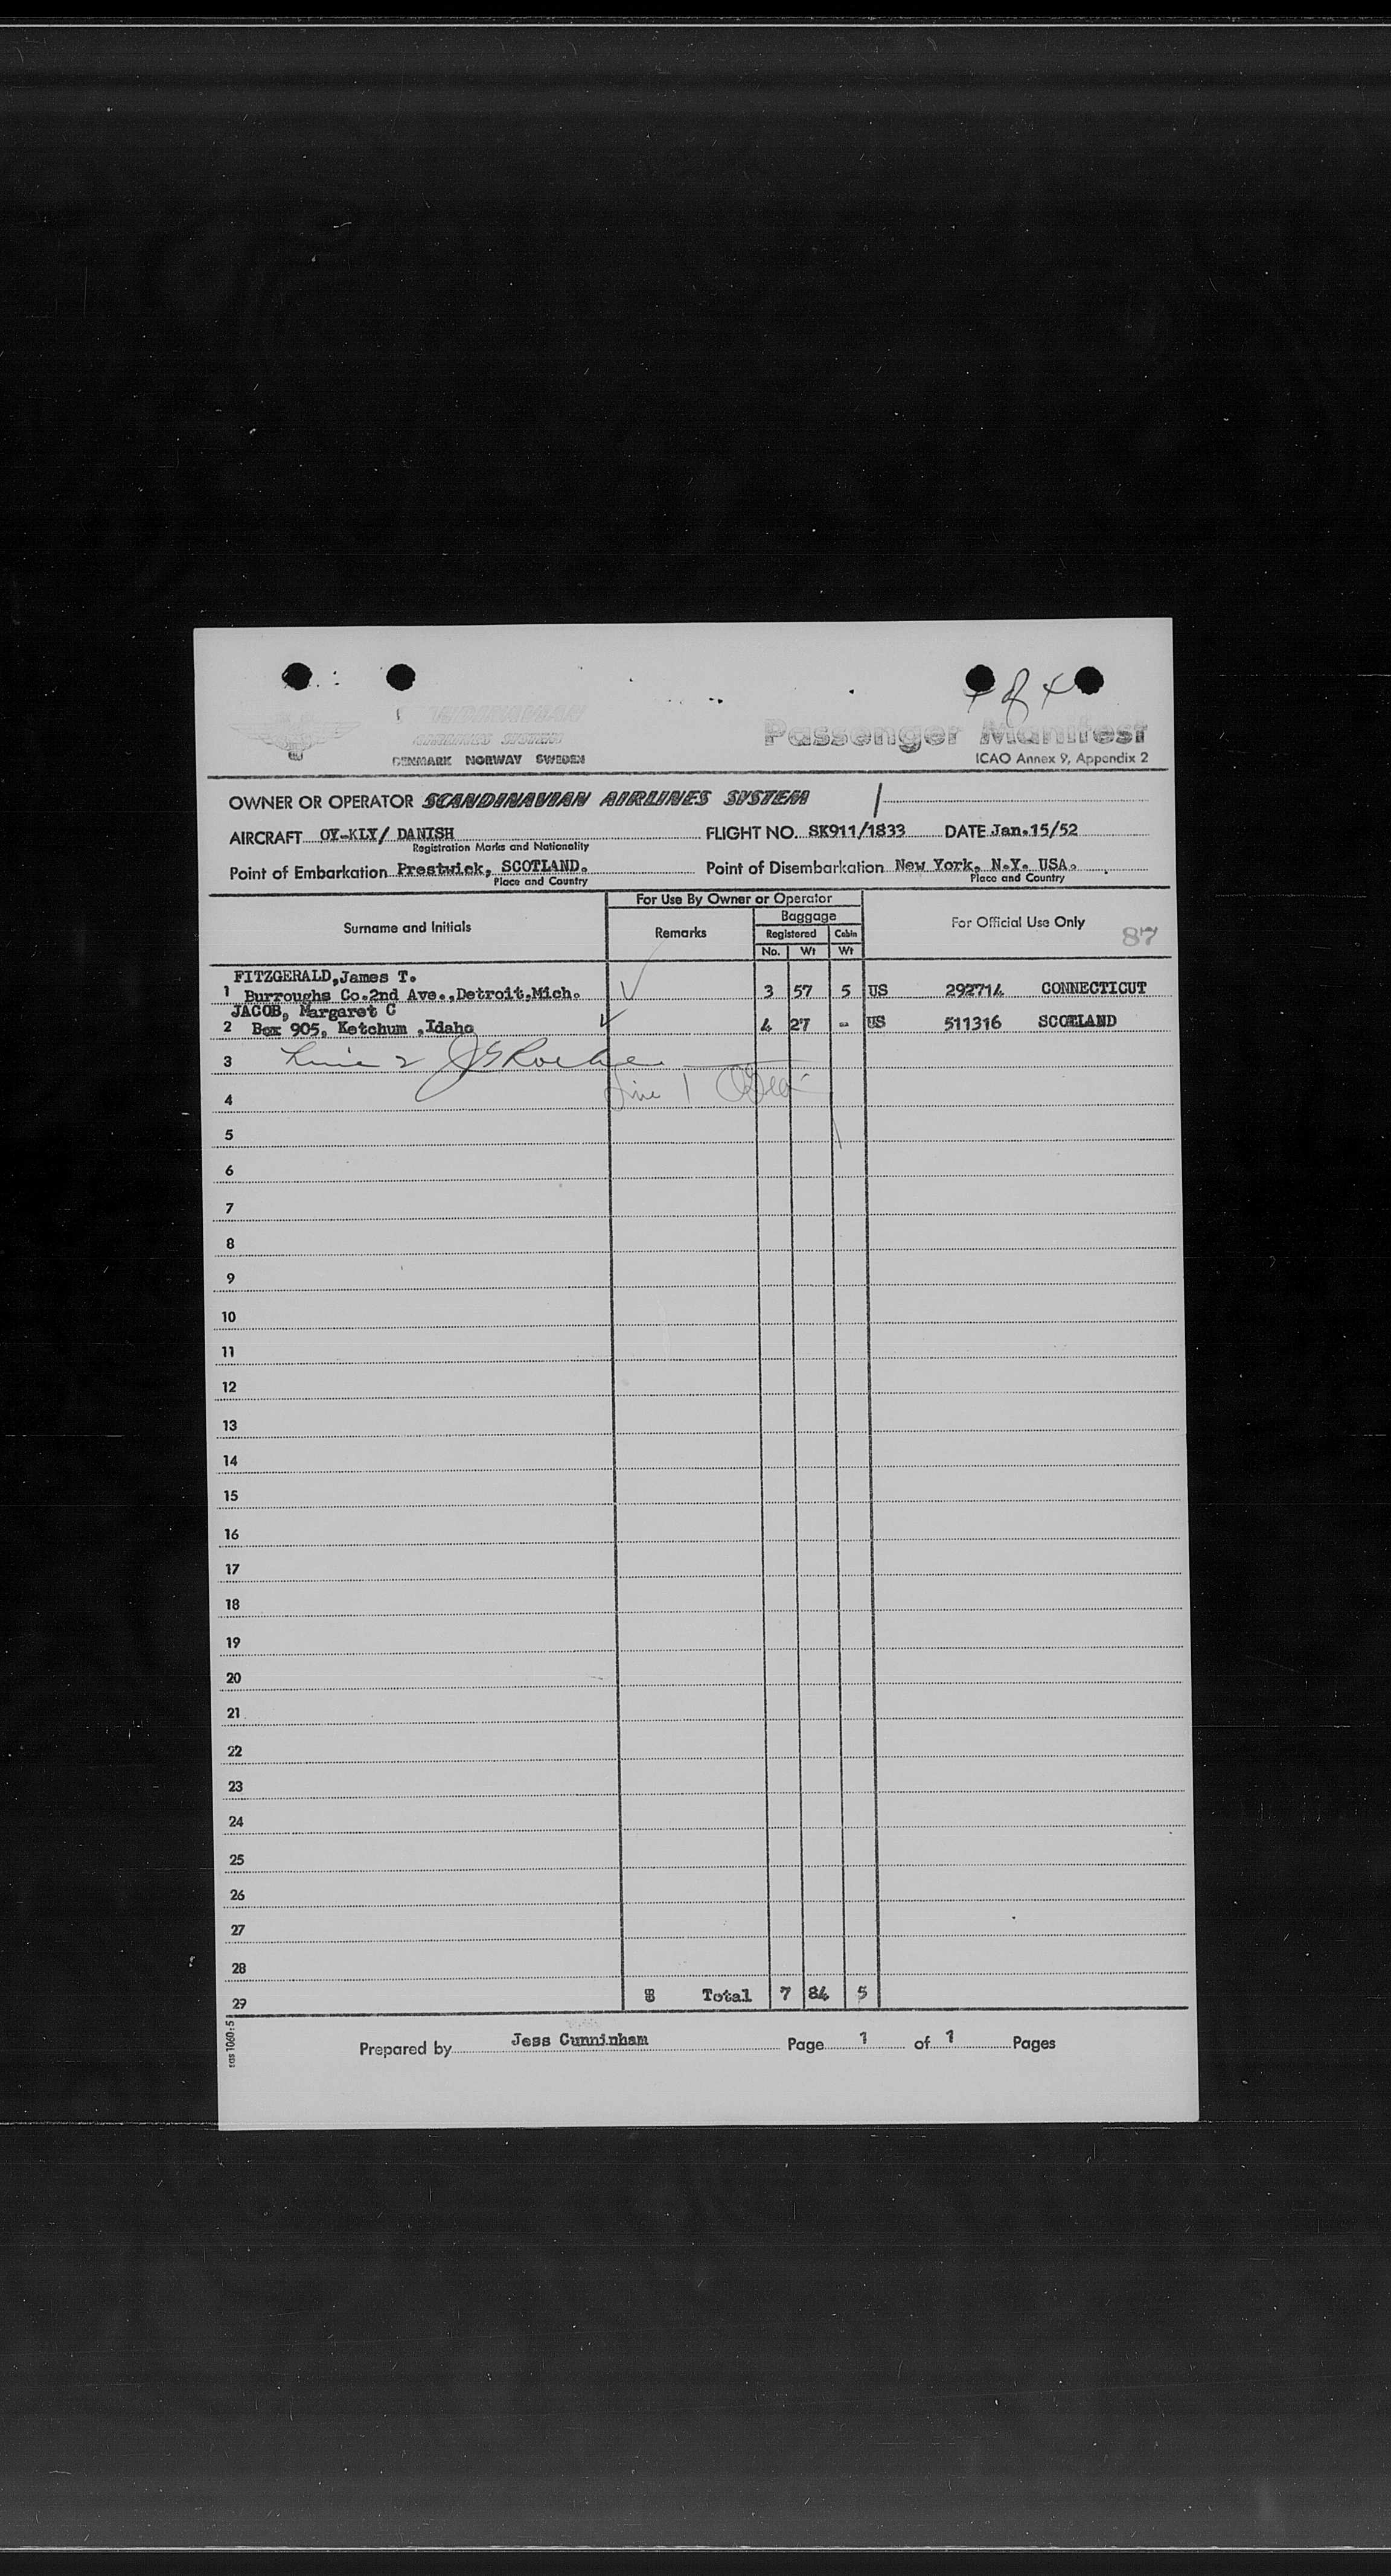 of 4
SCANDINAVIAN
AIRLINES SYSTEM
DENMARK NORWAY SWEDEN
Passenger Manifest
ICAO Annex 9, Appendix 2
OWNER OR OPERATOR SCANDINAVIAN AIRLINES SYSTEM
AIRCRAFT OY-KLY/ DANISH FLIGHT NO. SK911/1833 DATE Jan.15/52
Registration Marks and Nationality
Point of Embarkation Prestwick, SCOTLAND. Point of Disembarkation New York, N.Y. USA.
Place and Country Place and Country
For Use By Owner or Operator
Surname and Initials Remarks Baggage For Official Use Only
Registered Cabin 87
No. Wt Wt
FITZGERALD,James T.
1 Burroughs Co.2nd Ave.,Detroit.Mich. 3 57 5 US 292714 CONNECTICUT
JACOB, Margaret C
2 Box 905, Ketchum ,Idaho 4 27 - US 511316 SCOTLAND
3 Line 2
4 Line 1
5
6
7
8
9
10
11
12
13
14
15
16
17
18
19
20
21
22
23
24
25
26
27
28
29 Total 7 84 5
sas 1060:5
Prepared by Jess Cunninham Page 1 of 1 Pages